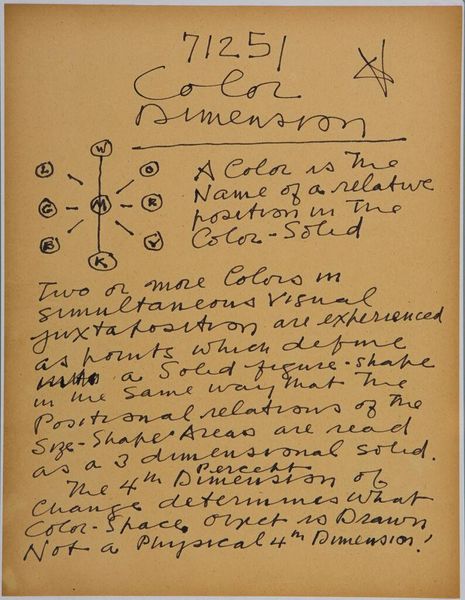 71251
Color
Dimension
W
L
O
G
M
R
B
V
K
A Color is The
Name of a relative
position in The
Color-Solid
Two or more Colors in
simultaneous visual
juxtaposition are experienced
as points which define
a Solid figure-shape
in the same way that The
Positional relations of the
Size-Shape Areas are read
as a 3 dimensional solid.
The 4th Percept Dimension of
Change determines what
Color-Space object is Drawn
Not a Physical 4th Dimension!